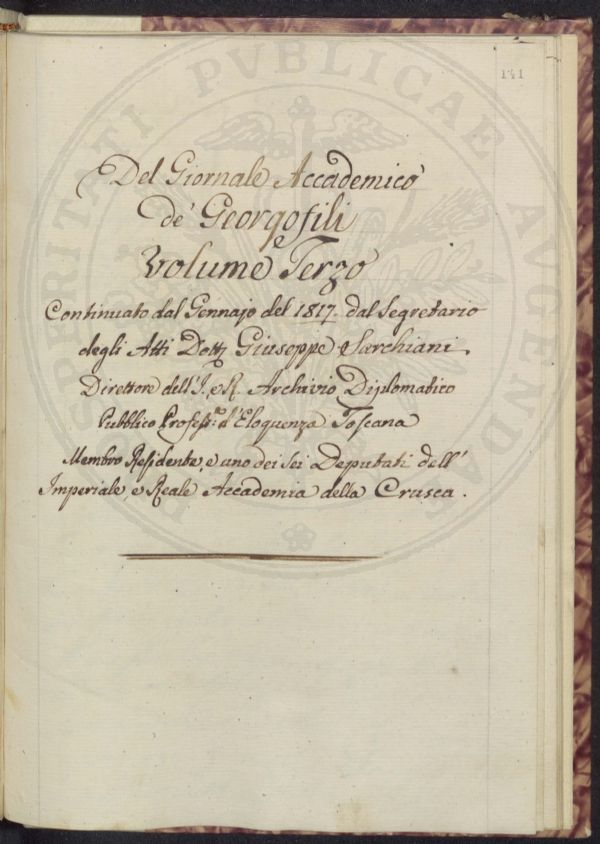 141
PROSPERITATI PVBLICAE AVGENDAE
Del Giornale Accademico
de' Georgofili
Volume Terzo
Continuato dal Gennajo del 1817. dal Segretario
degli Atti Dott. Giuseppe Sarchiani.
Direttore dell'I. e R. Archivio Diplomatico
Pubblico Profess.re d'Eloquenza Toscana
Membro Residente, e uno dei sei Deputati dell'
Imperiale, e Reale Accademia della Crusca.